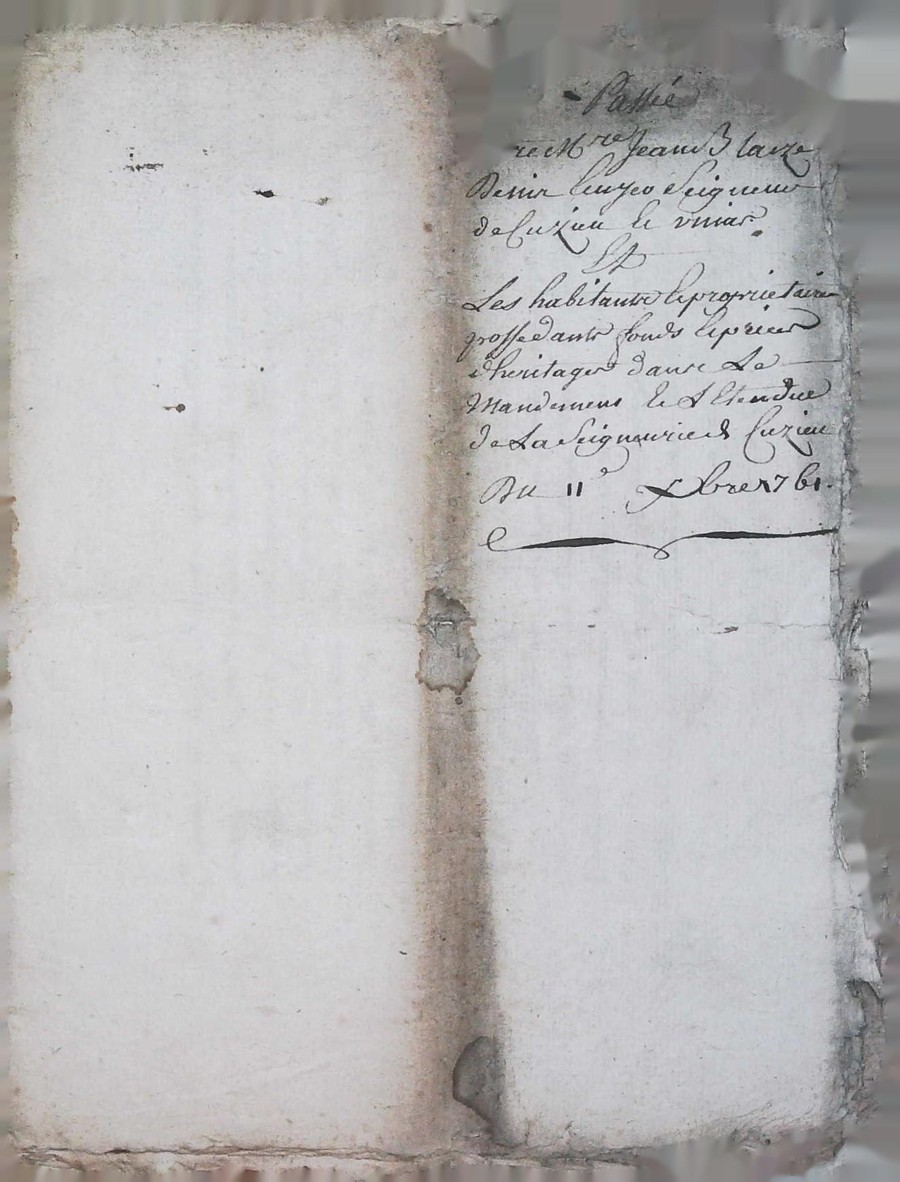 Passé
re Mre Jean Blaize
Denis Ecuyer Seigneur
de Cuzieu
Et
Les habitants & proprietaires
possedants fonds &
d'heritages dans Le
Mandement & L'Etendue
de La Seigneurie de Cuzieu
Du 11e xbre 1761.